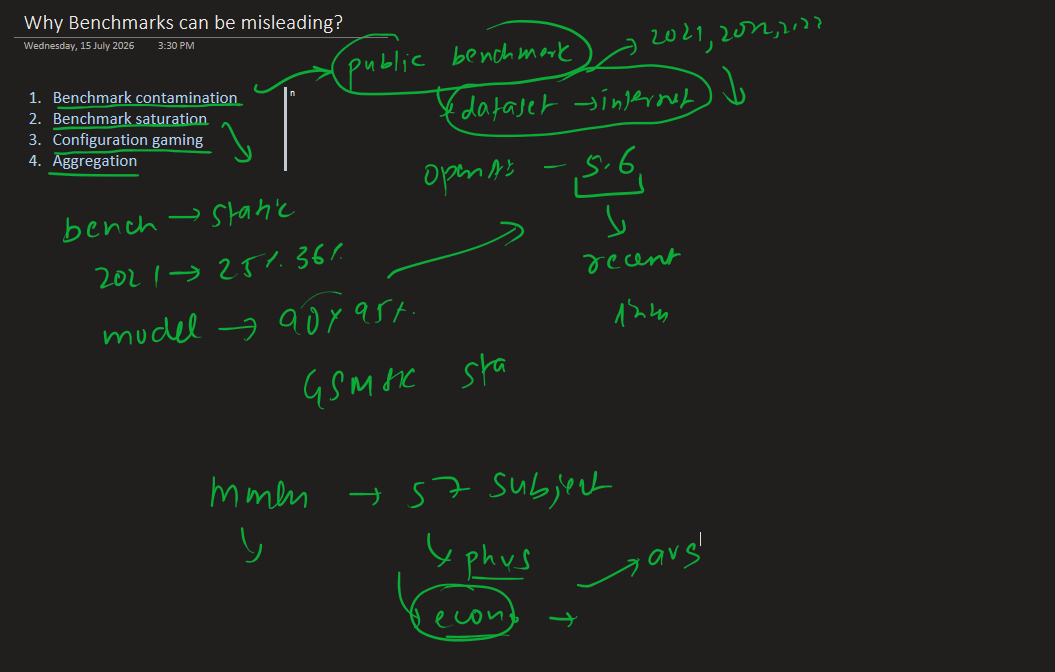 Why Benchmarks can be misleading?
Wednesday, 15 July 2026 3:30 PM
1. Benchmark contamination
2. Benchmark saturation
3. Configuration gaming
4. Aggregation
n
public benchmark → 2021, 2022, 2023
dataset → internet
OpenAI - 5.6
recent
bench → static
2021 → 25% 36%
model → 90% 95%
GSM8K sta
mmlu → 57 subject
phys
econo → avg